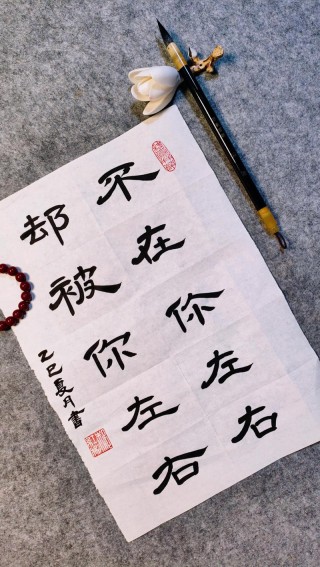 不在你左右
却被你左右
乙巳夏月書